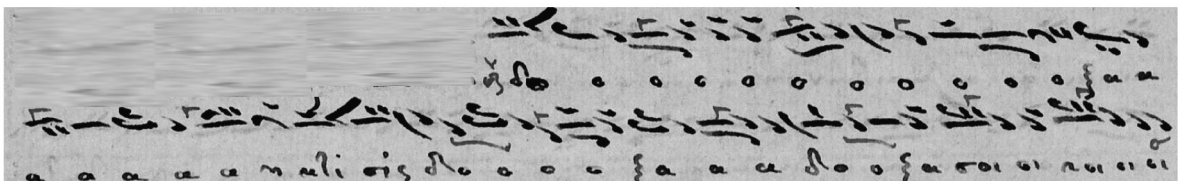 δο ο ο ο ο ο ο ο ο ο ο ξα α
α α α α α η κτι σις δο ο ο ο ξα α α δο ο ξα σοι οι